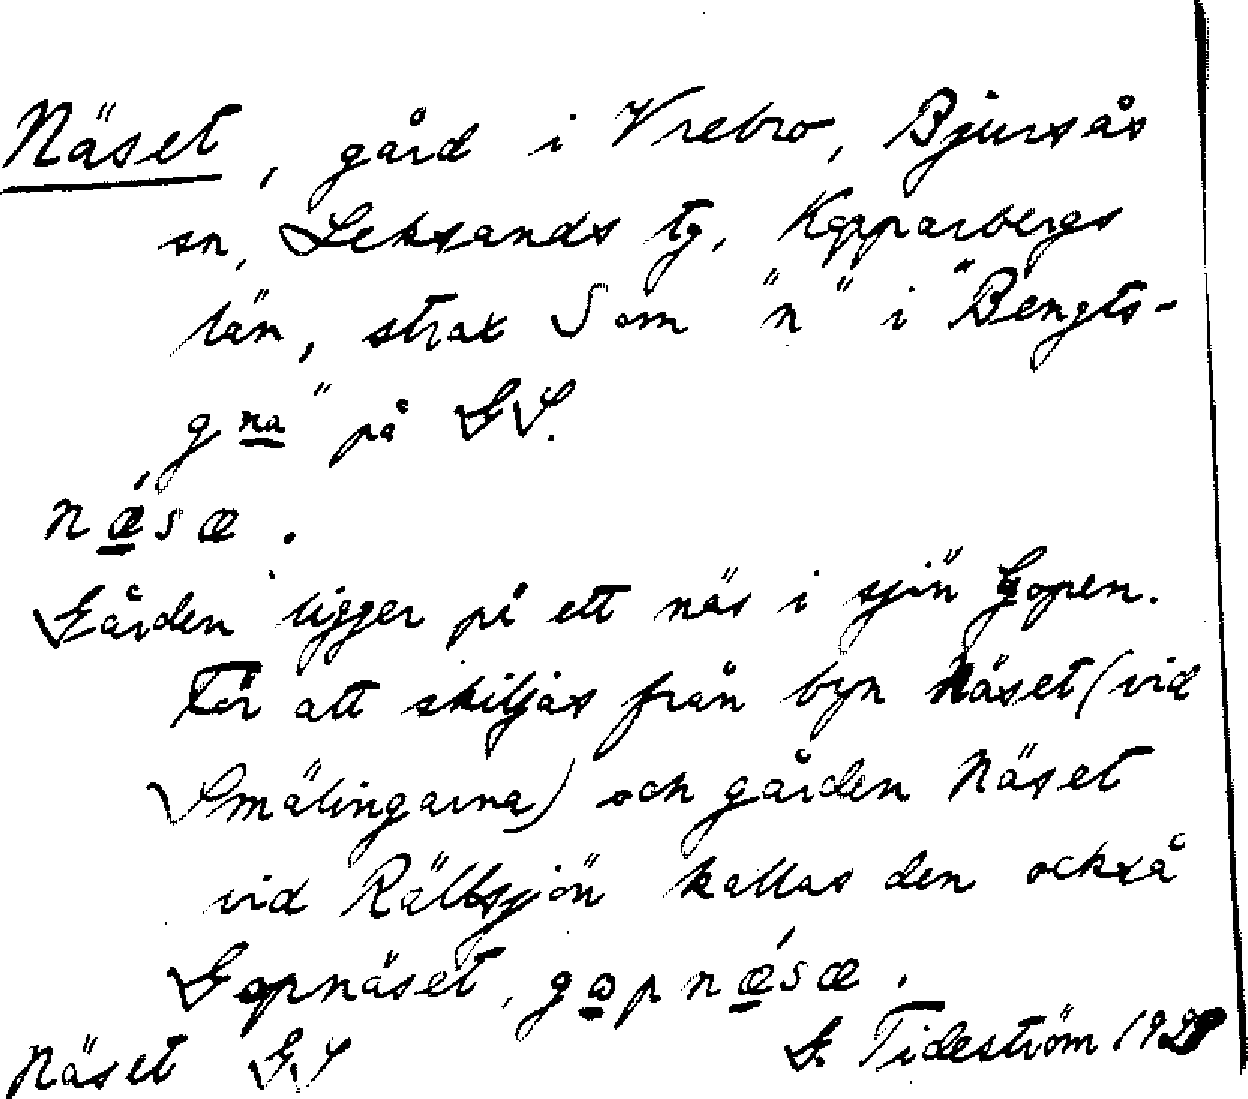 Näset, gård i Vrebro, Bjursås
sn, Leksands tg, Kopparbergs
län, strax S om "n" i "Bengts-
gna" på GS.
næ´sæ.
Gården ligger på ett näs i sjön Gopen.
För att skiljas från byn Näset (vid
Smälingarna) och gården Näset
vid Rällsjön kallas den också
Gopnäset, gopnæ´sæ.
Näset GS G. Tideström